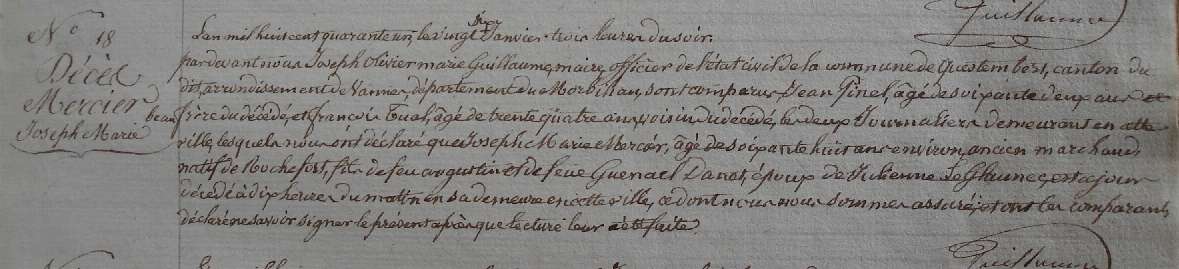 Guillaume
N° 18
Décès
Mercier
Joseph Marie
L'an mil huit cent quarante un, le vingt six Janvier trois heures du soir.
pardevant nous Joseph Olivier marie Guillaume, maire, officier de l'état civil de la commune de Questembert, canton du
dit, arrondissement de Vannes, département du Morbihan, sont comparus Jean Pinel, âgé de soixante deux ans
beau frère du décédé, et francois Tual, âgé de trente quatre ans, voisin du décédé, les deux Journaliers demeurant en cette
ville, lesquels nous ont déclaré que Joseph Marie Mercier, âgé de soixante huit ans environ, ancien marchand,
natif de Rochefort, fils de feu augustin et de feue Guenael Danet, époux de Julienne Le Glaunec, est ce jour
décédé à dix heures du matin en sa demeure en cette ville, ce dont nous nous sommes assuré, et ont les comparants
déclaré ne savoir signer le présent après que lecture leur a été faite.
Guillaume